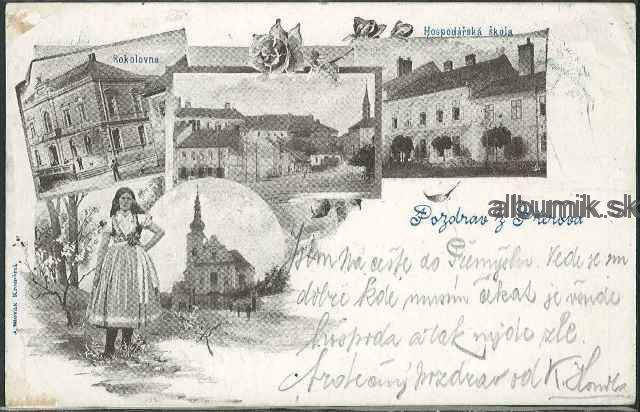 Sokolovna
Hospodářská škola
albumik.sk
Pozdrav z Přerova
Na cestě do Přemyšlu. Vede se mi
dobře kde musím čekat je všude
hospoda a tak nejde zle.
Srdečný pozdrav od K.